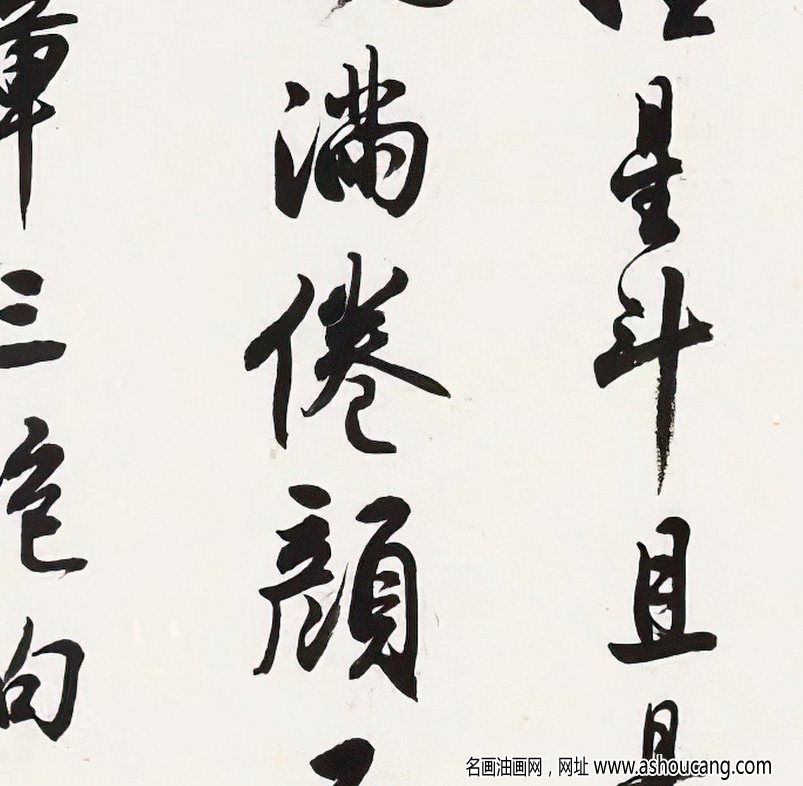 星斗且
满倦颜
三色句
名画油画网，网址 www.ashoucang.com